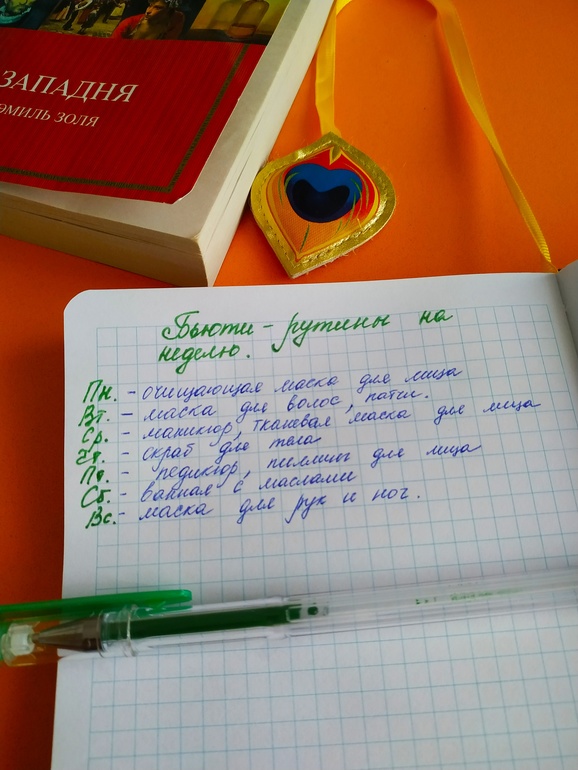 ЗАПАДНЯ
ЭМИЛЬ ЗОЛЯ
Бьюти - рутины на
неделю.
Пн. - очищающая маска для лица
Вт. - маска для волос, патчи.
Ср. - маникюр, тканевая маска для лица
Чт. - скраб для тела
Пт. - педикюр, пиллинг для лица
Сб. - ванная с маслами
Вс. - маска для рук и ног.